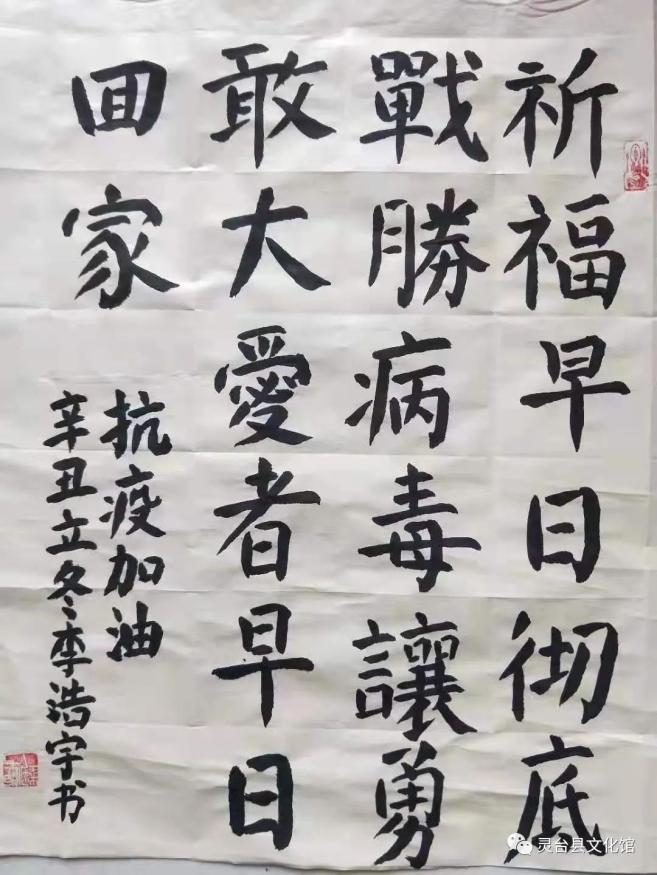 祈福早日彻底
戰勝病毒讓勇
敢大愛者早日
囬家
抗疫加油
辛丑立冬李浩宇书
灵台县文化馆